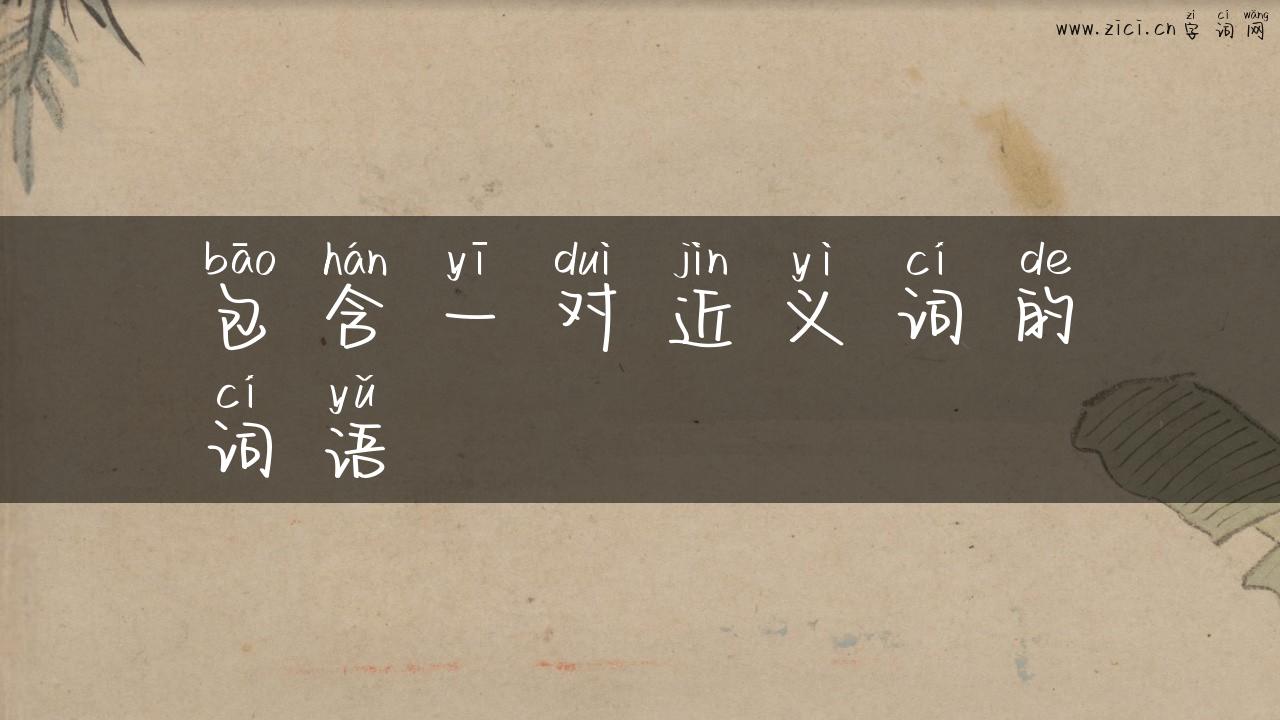 zì cí wǎng
www.zici.cn 字词网
bāo hán yī duì jìn yì cí de
包含一对近义词的
cí yǔ
词语